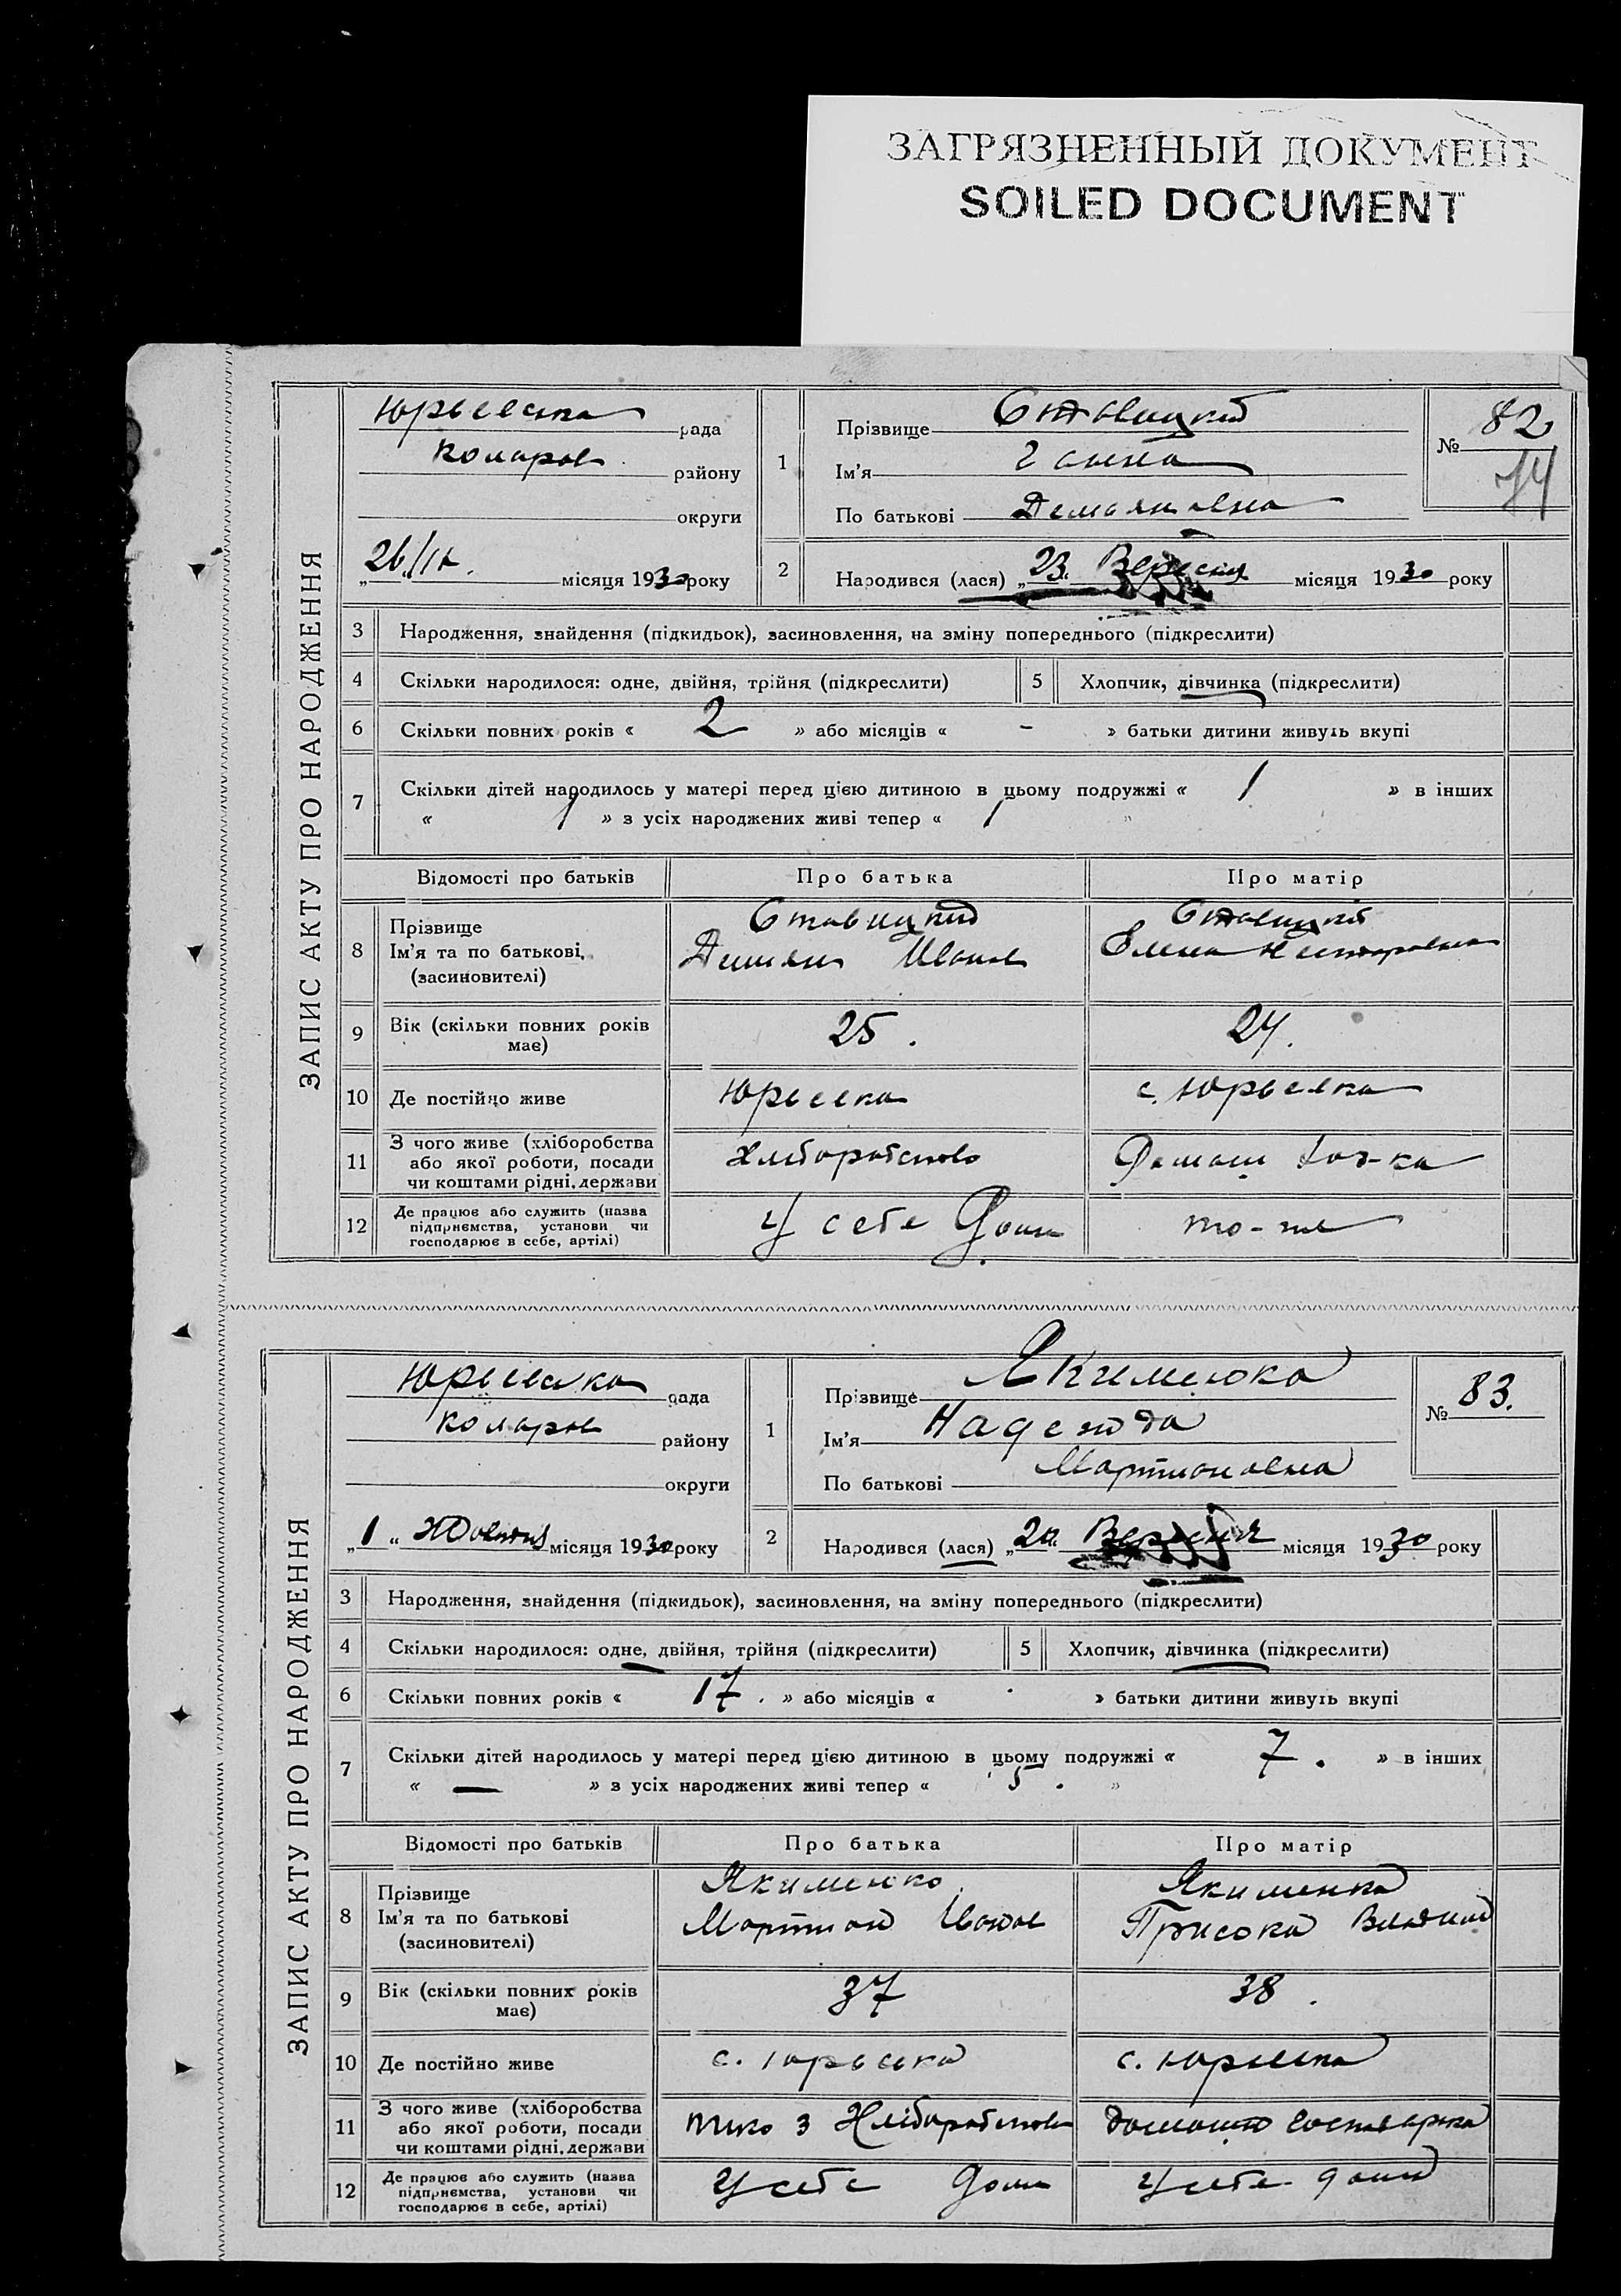 ЗАГРЯЗНЕННЫЙ ДОКУМЕНТ
SOILED DOCUMENT
ЗАПИС АКТУ ПРО НАРОДЖЕННЯ
рада
району
округи
26/IX. місяця 1930 року
1
Прізвище Ставицкий
Ім'я Ганна
По батькові Демьяновна
№ 82
2
Народився (лася) „23" Вересня місяця 1930 року
3 Народження, знайдення (підкидьок), засиновлення, на зміну попереднього (підкреслити)
4 Скільки народилося: одне, двійня, трійня (підкреслити) 5 Хлопчик, дівчинка (підкреслити)
6 Скільки повних років « 2 » або місяців « - » батьки дитини живуть вкупі
7 Скільки дітей народилось у матері перед цією дитиною в цьому подружжі « 1 » в інших
« 1 » з усіх народжених живі тепер « 1 »
Відомості про батьків Про батька Про матір
8 Прізвище Ставицкий Ставицкий
Ім'я та по батькові, Иванов Елена Несторовна
(засиновителі)
9 Вік (скільки повних років має) 25. 24.
10 Де постійно живе Юрьевка с. Юрьевка
11 З чого живе (хліборобства або якої роботи, посади чи коштами рідні, держави Хліборобство
12 Де працює або служить (назва підприємства, установи чи господарює в себе, артілі) У себе дома то-же
ЗАПИС АКТУ ПРО НАРОДЖЕННЯ
рада
району
округи
„1" Жовтня місяця 1930 року
1
Прізвище Якименко
Ім'я Надежда
По батькові Мартиановна
№ 83.
2
Народився (лася) Вересня місяця 1930 року
3 Народження, знайдення (підкидьок), засиновлення, на зміну попереднього (підкреслити)
4 Скільки народилося: одне, двійня, трійня (підкреслити) 5 Хлопчик, дівчинка (підкреслити)
6 Скільки повних років « 17. » або місяців « » батьки дитини живуть вкупі
7 Скільки дітей народилось у матері перед цією дитиною в цьому подружжі « 7. » в інших
« — » з усіх народжених живі тепер « 5. »
Відомості про батьків Про батька Про матір
8 Прізвище Якименко Якименко
Ім'я та по батькові Мартиан Иванов
(засиновителі)
9 Вік (скільки повних років має) 37 38.
10 Де постійно живе с. Юрьевка с. Юрьевка
11 З чого живе (хліборобства або якої роботи, посади чи коштами рідні, держави з Хліборобства
12 Де працює або служить (назва підприємства, установи чи господарює в себе, артілі) У себе дома У себе дома